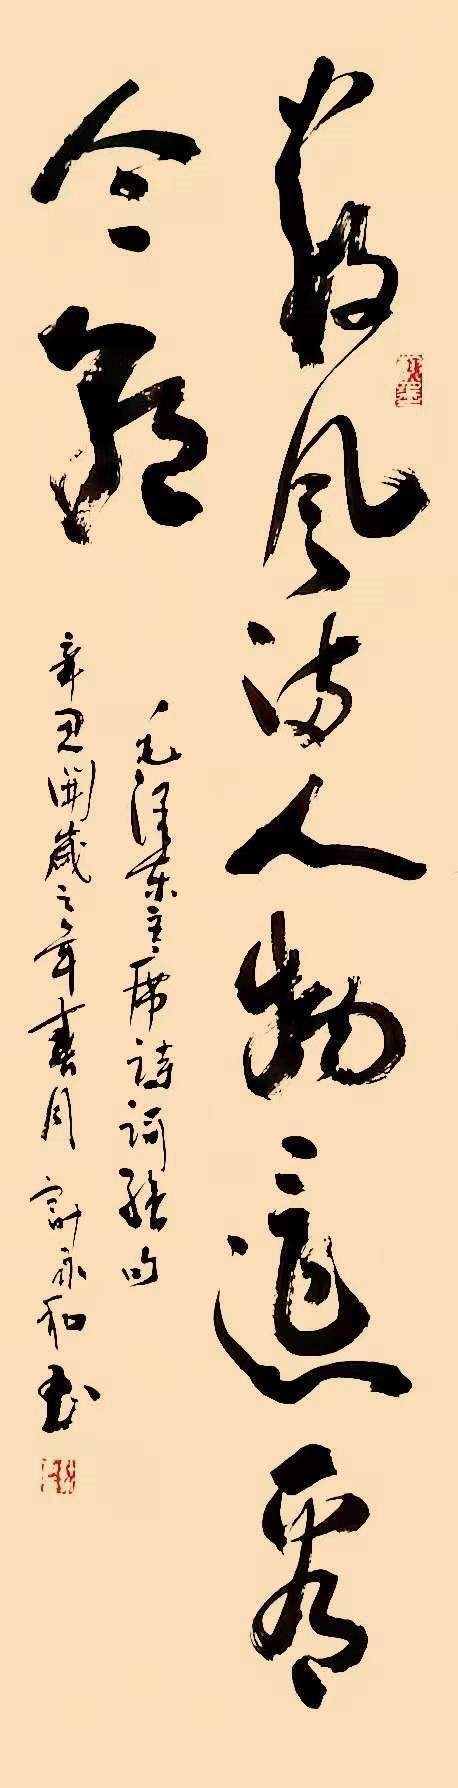 数风流人物还看
今朝
毛泽东主席诗词绝句
辛丑开岁之年春月 许永和书